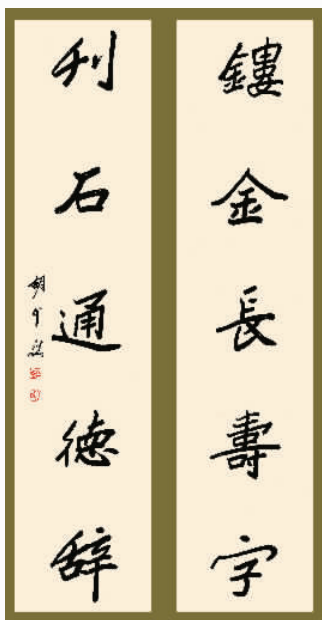 鏤金長壽字
刊石通德辞